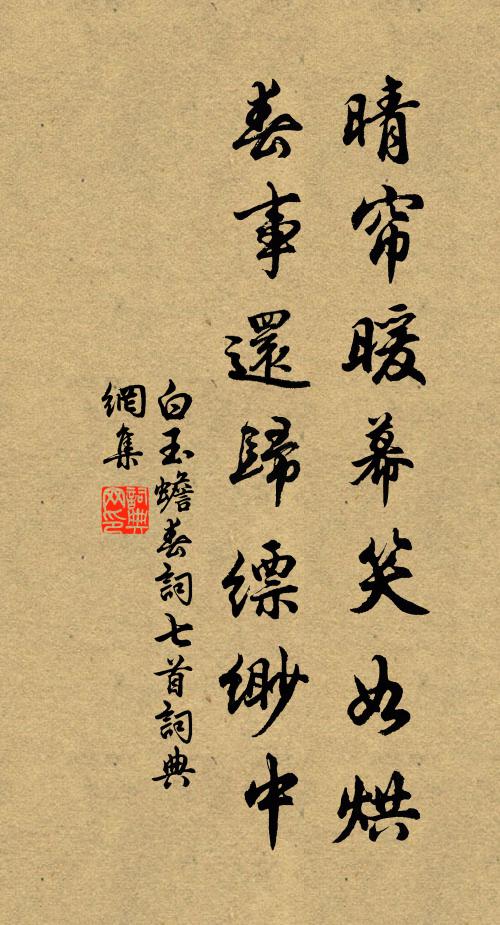 晴帘暖幕笑如烘
春事還歸縹緲中
白玉蟾春詞七首詞典
網集
詞典
网印